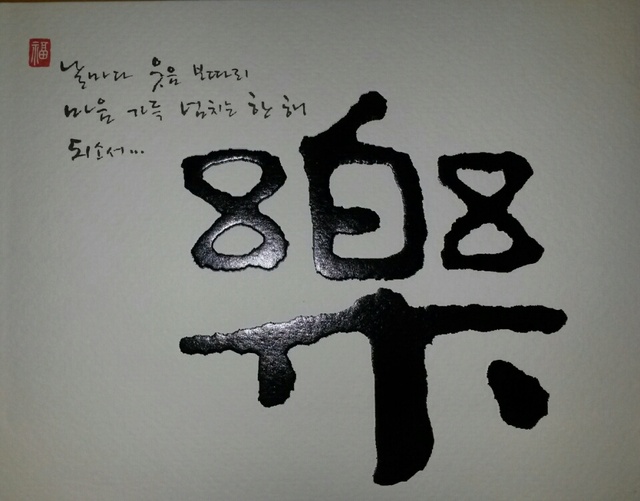 福
날마다 웃음 보따리
마음 가득 넘치는 한 해
되소서...
樂